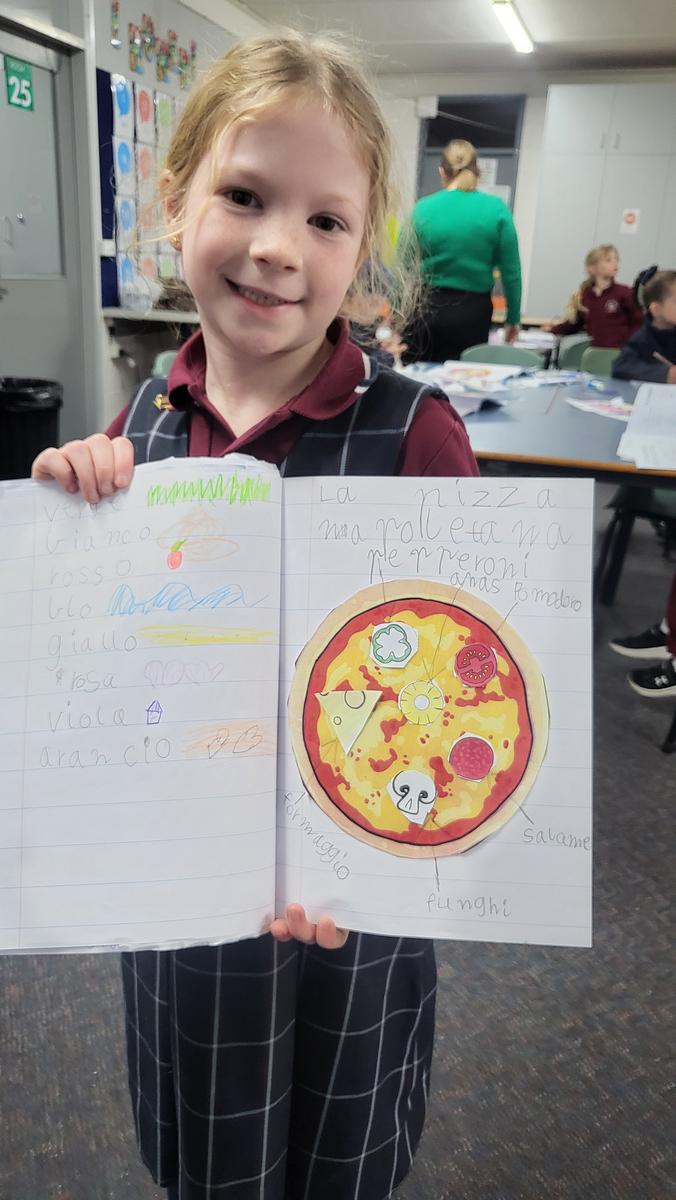 ROOM
25
verde
bianco
rosso
blo
giallo
rosa
viola
arancio
La pizza
napolletana
pepperoni
anas
Pomodoro
formaggio
salame
funghi